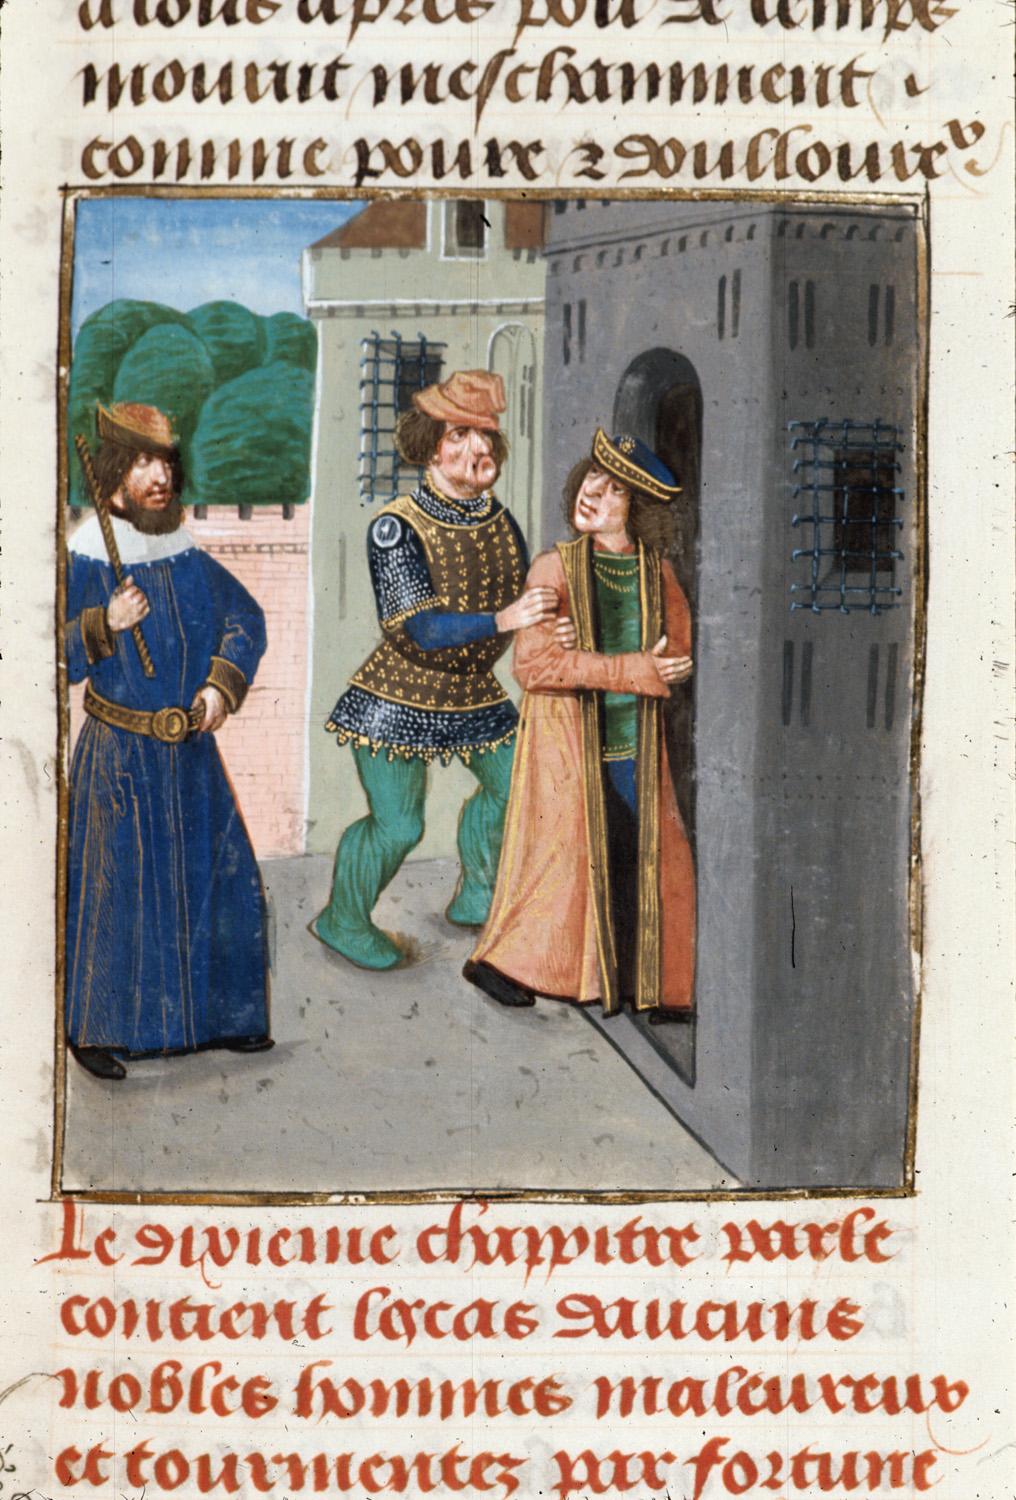 a tous apres pou de temps
mourut meschamment
comme poure et doulloureux
Le dixieme chappitre parle
contient les cas daucuns
nobles hommes maleureux
et tourmentez par fortune